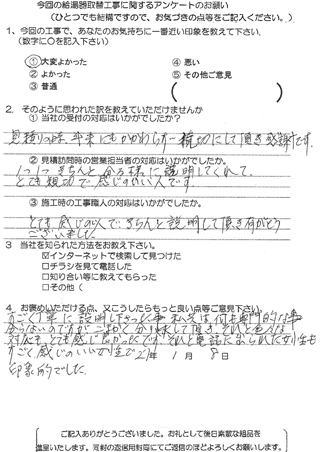 今回の給湯器取替工事に関するアンケートのお願い
(ひとつでも結構ですので、お気づきの点等をご記入ください。)
1、今回の工事で、あなたのお気持ちに一番近い印象を教えて下さい。
(数字に○を記入下さい)
①大変よかった ④悪い
②よかった ⑤その他ご意見
③普通 ( )
2. そのように思われた訳を教えていただけませんか
① 当社の受付の対応はいかがでしたか?
見積りの時、年末にもかかわらず親切にして頂き感謝です
② 見積訪問時の営業担当者の対応はいかがでしたか。
1つ1つきちんと分る様に説明してくれて、
とても親切で感じの良い人です。
③ 施工時の工事職人の対応はいかがでしたか。
とても感じの良い人できちんと説明して頂き有がとう
ございました
3 当社を知られた方法をお教え下さい。
☑インターネットで検索して見つけた
□チラシを見て電話した
□知り合い等に教えてもらった
□その他(
4. お褒めいただける点、又こうしたらもっと良い点等ご意見下さい。
すごく丁寧に説明して下さった事 私共は何も専門的な事
分らないのですが こまかく分り易くして頂き、それと色んな
対応も とても感じ良かったです それと電話に出られた女性も
すごく感じのいい女性で 21年 1月 8日
印象的でした。
ご記入ありがとうございました。お礼として後日素敵な組品を
進呈いたします。同封の返信用封筒にてご返信のほどよろしくお願いします。